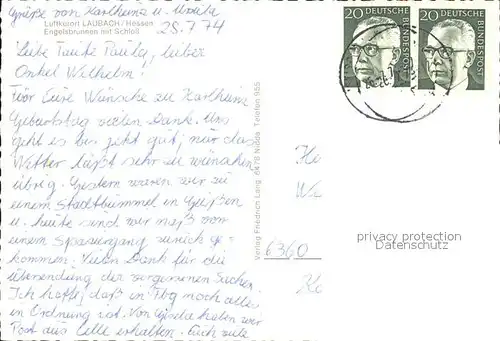 Grüße von Karlheinz u. Usula
Luftkurort LAUBACH/Hessen
Engelsbrunnen mit Schloß
28.7.74
Liebe Tante Paula, lieber
Onkel Wilhelm!
Für Eure Wünsche zu Karlheinz
Geburtstag vielen Dank. Uns
geht es bis jetzt gut, nur das
Wetter läßt sehr zu wünschen
übrig. Gestern waren wir zu
einem Stadtbummel in Gießen
u. heute sind wir naß von
einem Spaziergang zurück ge-
kommen. Vielen Dank für die
Übersendung der vergessenen Sachen.
Ich hoffe, daß in Fbg noch alles
in Ordnung ist. Von Gisela haben wir
Post aus Celle erhalten. Euch viele
Verlag Friedrich Lang 6478 Nidda Telefon 955
20 DEUTSCHE BUNDESPOST
20 DEUTSCHE BUNDESPOST
6360
privacy protection
Datenschutz